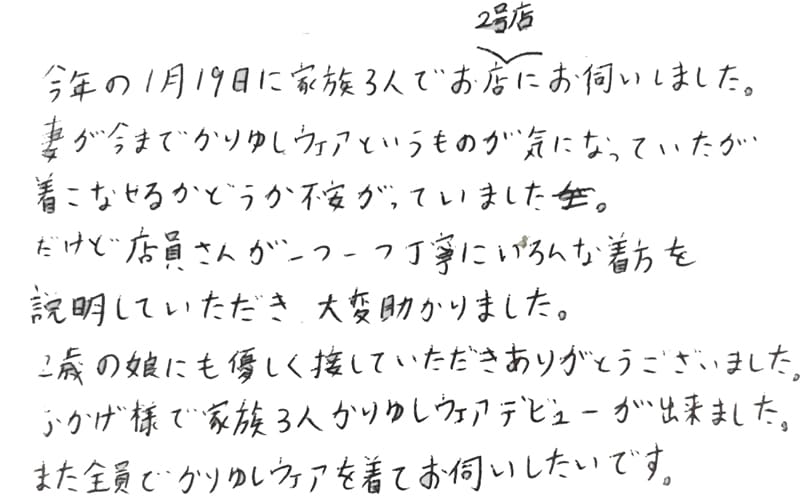 2号店
今年の1月19日に家族3人でお店にお伺いしました。
妻が今までかりゆしウェアというものが気になっていたが
着こなせるかどうか不安がっていました。
だけど店員さんが一つ一つ丁寧にいろんな着方を
説明していただき 大変助かりました。
2歳の娘にも優しく接していただきありがとうございました。
おかげ様で家族3人かりゆしウェアデビューが出来ました。
また全員でかりゆしウェアを着てお伺いしたいです。